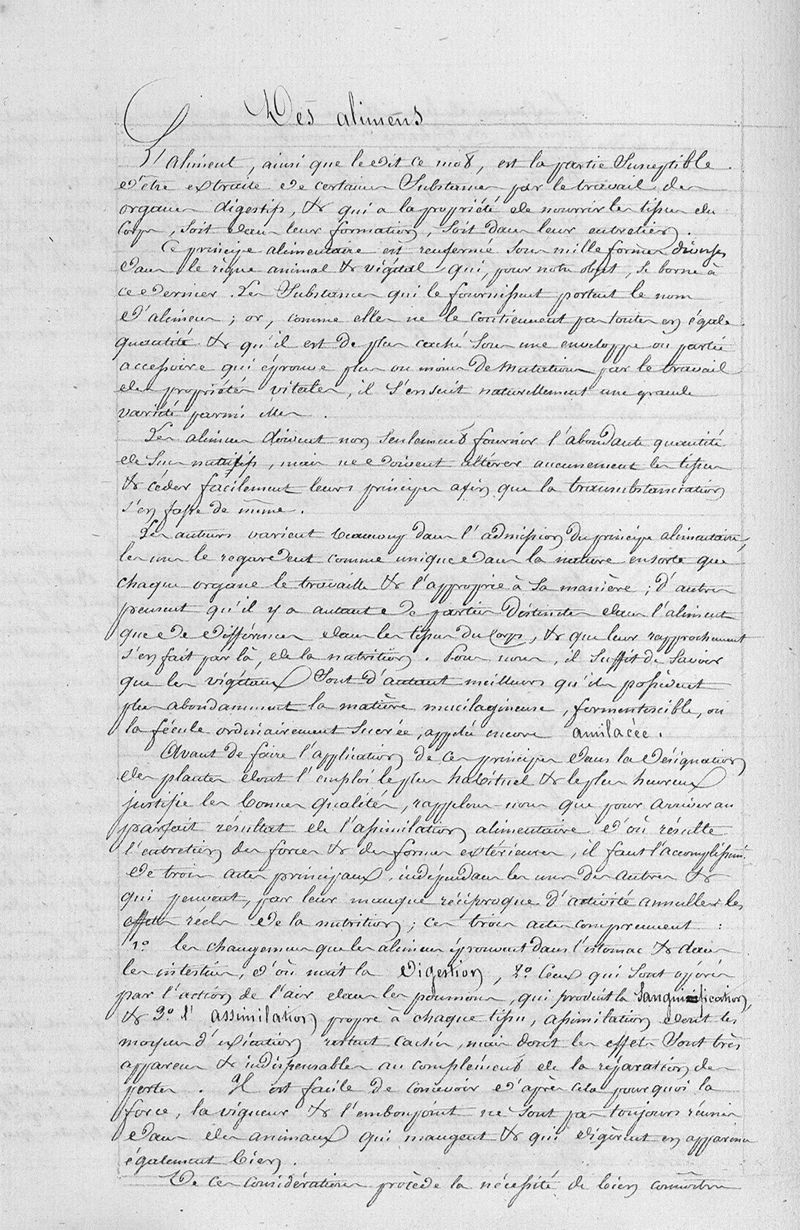 Des alimens
L'aliment, ainsi que le dit ce mot, est la partie susceptible
d'être extraite de certaines substances par le travail des
organes digestifs, & qui a la propriété de nourrir les tissus du
Corps, soit dans leur formation, soit dans leur entretien.
Ce principe alimentaire est renfermé sous mille formes diverses
dans le règne animal & végétal qui, pour notre objet, se borne à
ce dernier. Les Substances qui le fournissent portent le nom
d'alimens; or, comme elles ne le contiennent pas toutes en égale
quantité & qu'il est de plus caché sous une enveloppe ou partie
accessoire qui éprouve plus ou moins de mutations par le travail
des propriétés vitales, il s'ensuit naturellement une grande
variété parmi elles.
Les alimens doivent non seulement fournir l'abondante quantité
de sucs nutritifs, mais ne doivent altérer aucunement les tissus
& céder facilement leurs principes afin que la transubstanciation
s'en fasse de même.
Les auteurs varient beaucoup dans l'admission du principe alimentaire,
les uns le regardent comme unique dans la nature ensorte que
chaque organe le travaille & l'approprie à sa manière; d'autres
pensent qu'il y a autant de parties distinctes dans l'aliment
que de différences dans les tissus du Corps, & que leur rapprochement
s'en fait par là, de la nutrition. Pour nous, il suffit de savoir
que les végétaux sont d'autant meilleurs qu'ils possèdent
plus abondamment la matière mucilagineuse, fermentiscible, ou
la fécule ordinairement sucrée, appelée encore amilacée.
Avant de faire l'application de ces principes dans la désignation
des plantes dont l'emploi le plus habituel & le plus heureux
justifie les bonnes qualités, rappelons-nous que pour arriver au
parfait résultat de l'assimilation alimentaire d'où résulte
l'entretien des forces & des formes extérieures, il faut l'accomplissmt
de trois actes principaux, indépendans les uns des autres &
qui peuvent, par leur manque réciproque d'activité annuller les
effets réels de la nutrition; ces trois actes comprennent :
1º les changemens que les alimens éprouvent dans l'estomac & dans
les intestins, d'où naît la digestion, 2º Ceux qui sont opérés
par l'action de l'air dans les poumons, qui produit la sanguinification,
& 3º l'assimilation propre à chaque tissu, assimilation dont les
moyens d'exécution restent cachés, mais dont les effets sont très
apparens & indispensables au complément de la réparation des
pertes. Il est facile de concevoir d'après cela pourquoi la
force, la vigueur & l'embonpoint ne sont pas toujours réunis
dans des animaux qui mangent & qui digèrent en apparence
également bien.
De ces considérations procède la nécessité de bien connaître